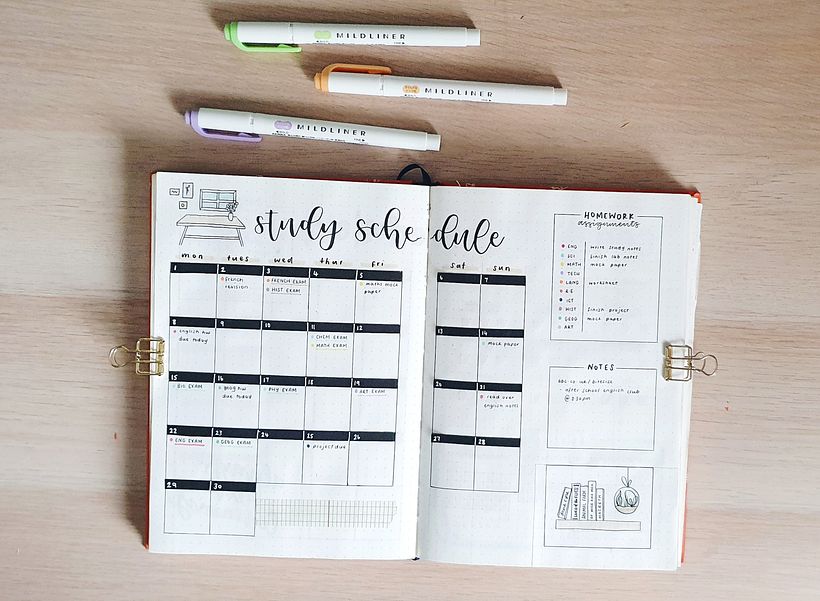 MILDLINER
MILDLINER
MILDLINER
study schedule
mon tues wed thur fri sat sun
1 2 3 4 5 6 7
french revision
FRENCH EXAM
HIST EXAM
maths mock paper
8 9 10 11 12 13 14
english hw due today
CHEM EXAM
MATH EXAM
mock paper
15 16 17 18 19 20 21
BIO EXAM
geog hw due today
PHY EXAM
ART EXAM
read over english notes
22 23 24 25 26 27 28
ENG EXAM
GEOG EXAM
project due
29 30
HOMEWORK
assignments
ENG write study notes
SCI finish lab notes
MATH mock paper
TECH
LANG worksheet
R.E
ICT
HIST finish project
GEOG mock paper
ART
NOTES
bbc.co.uk/bitesize
- after school english club
MACBETH